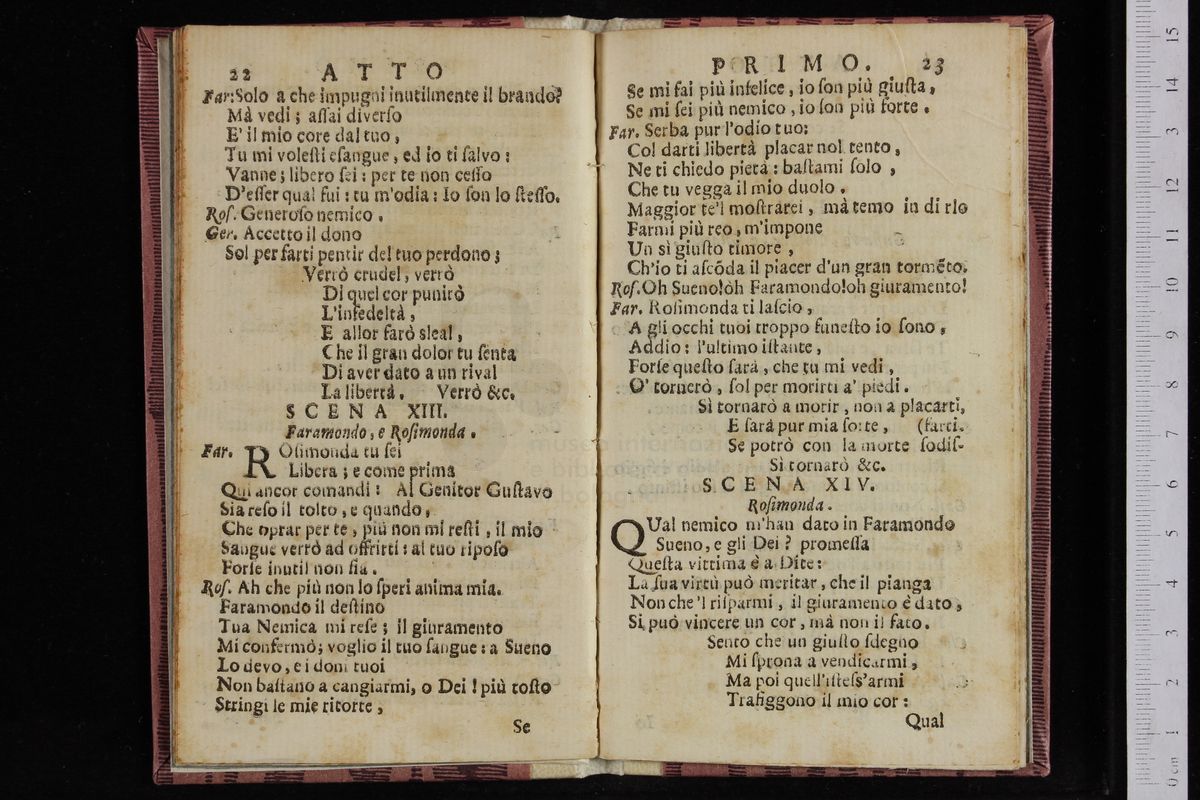 22 ATTO
Far: Solo a che impugni inutilmente il brando?
Mà vedi; aſſai diverſo
E' il mio core dal tuo,
Tu mi voleſti eſangue, ed io ti ſalvo:
Vanne; libero ſei: per te non ceſſo
D'eſſer qual fui: tu m'odia: Io ſon lo ſteſſo.
Roſ. Generoſo nemico.
Ger. Accetto il dono
Sol per farti pentir del tuo perdono;
Verrò crudel, verrò
Di quel cor punirò
L'infedeltà,
E allor farò sleal,
Che il gran dolor tu ſenta
Di aver dato a un rival
La libertà. Verrò &c.
SCENA XIII.
Faramondo, e Roſimonda.
Far. ROſimonda tu ſei
Libera; e come prima
Qui ancor comandi: Al Genitor Guſtavo
Sia reſo il tolto, e quando,
Che oprar per te, più non mi reſti, il mio
Sangue verrò ad offrirti: al tuo ripoſo
Forſe inutil non fia.
Roſ. Ah che più non lo ſperi anima mia.
Faramondo il deſtino
Tua Nemica mi reſe; il giuramento
Mi confermò; voglio il tuo ſangue: a Sueno
Lo devo, e i doni tuoi
Non baſtano a cangiarmi, o Dei! più toſto
Stringi le mie ritorte,
Se
PRIMO. 23
Se mi fai più infelice, io ſon più giuſta,
Se mi ſei più nemico, io ſon più forte.
Far. Serba pur l'odio tuo:
Col darti libertà placar nol tento,
Ne ti chiedo pietà: baſtami ſolo,
Che tu vegga il mio duolo.
Maggior te'l moſtrarei, mà temo in di rlo
Farmi più reo, m'impone
Un sì giuſto timore,
Ch'io ti aſcõda il piacer d'un gran tormẽto.
Roſ. Oh Sueno! òh Faramondo! oh giuramento!
Far. Roſimonda ti laſcio,
A gli occhi tuoi troppo funeſto io ſono,
Addio: l'ultimo iſtante,
Forſe queſto ſarà, che tu mi vedi,
O' tornerò, ſol per morirti a' piedi.
Sì tornarò a morir, non a placarti,
E ſarà pur mia ſorte, (farti.
Se potrò con la morte ſodiſ-
Sì tornarò &c.
SCENA XIV.
Roſimonda.
QUal nemico m'han dato in Faramondo
Sueno, e gli Dei? promeſſa
Queſta vittima è a Dite:
La ſua virtù può meritar, che il pianga
Non che 'l riſparmi, il giuramento è dato,
Si può vincere un cor, mà non il fato.
Sento che un giuſto ſdegno
Mi ſprona a vendicarmi,
Ma poi quell'iſteſs'armi
Trafiggono il mio cor:
Qual